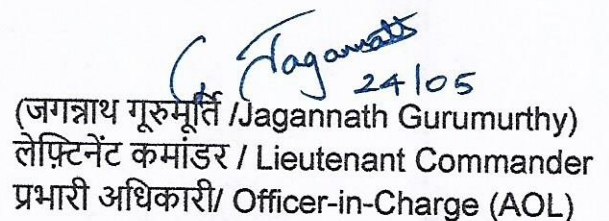 G. Jagannath
24/05
(जगन्नाथ गूरुमूर्ति /Jagannath Gurumurthy)
लेफ़्टिनेंट कमांडर / Lieutenant Commander
प्रभारी अधिकारी/ Officer-in-Charge (AOL)